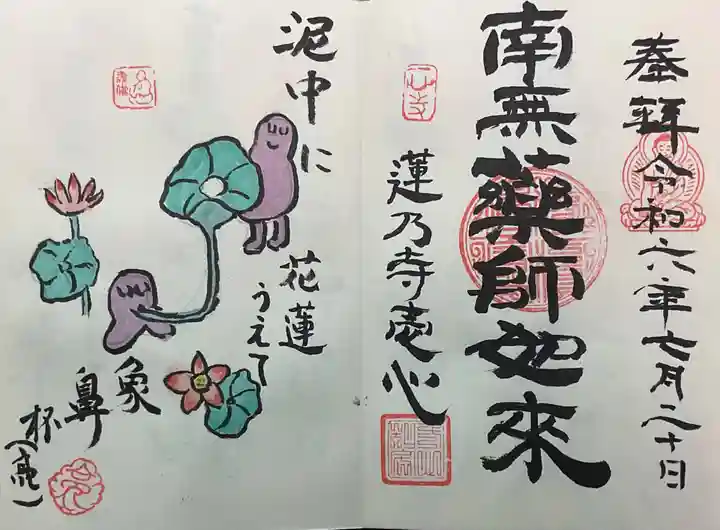 奉拜 令和六年七月二十日
南無藥師如來
蓮乃寺壱心
泥中に
花蓮
うえて
象
鼻
杯(亮)